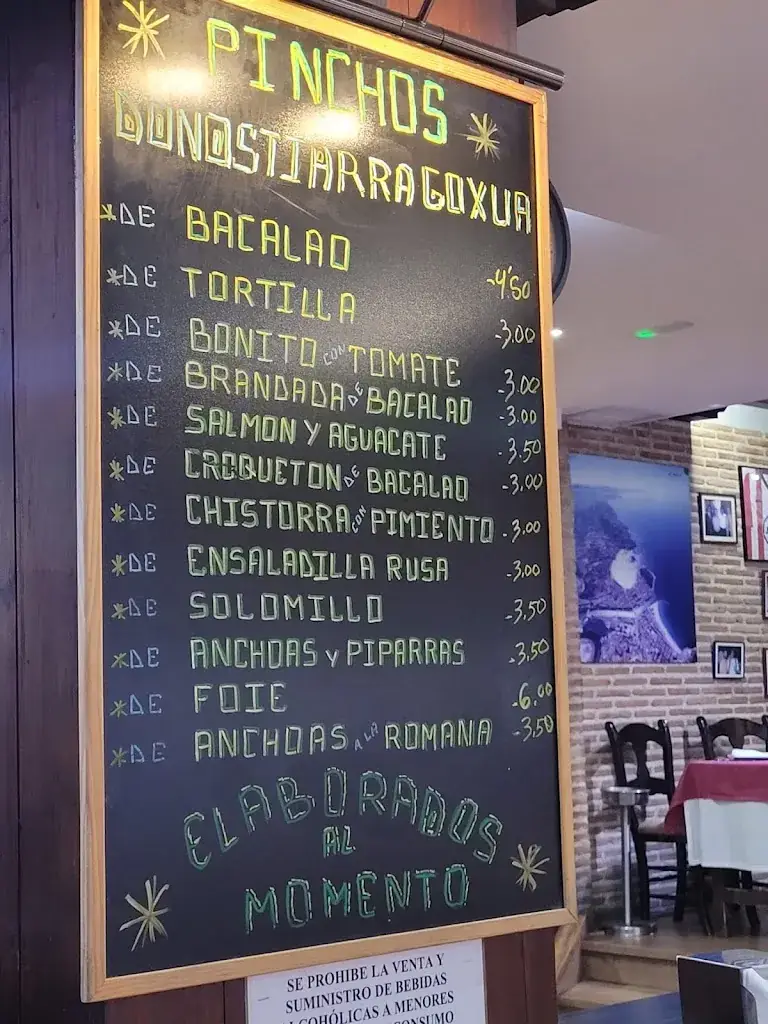 PINCHOS
DONOSTIARRA GOXUA
*DE BACALAO -4'50
*DE TORTILLA -3.00
*DE BONITO CON TOMATE -3.00
*DE BRANDADA DE BACALAO -3.00
*DE SALMON Y AGUACATE -3.50
*DE CROQUETON DE BACALAO -3.00
*DE CHISTORRA CON PIMIENTO -3.00
*DE ENSALADILLA RUSA -3.00
*DE SOLOMILLO -3.50
*DE ANCHOAS Y PIPARRAS -3.50
*DE FOIE -6.00
*DE ANCHOAS A LA ROMANA -3.50
ELABORADOS
AL
MOMENTO
SE PROHIBE LA VENTA Y
SUMINISTRO DE BEBIDAS
ALCOHÓLICAS A MENORES
CONSUMO